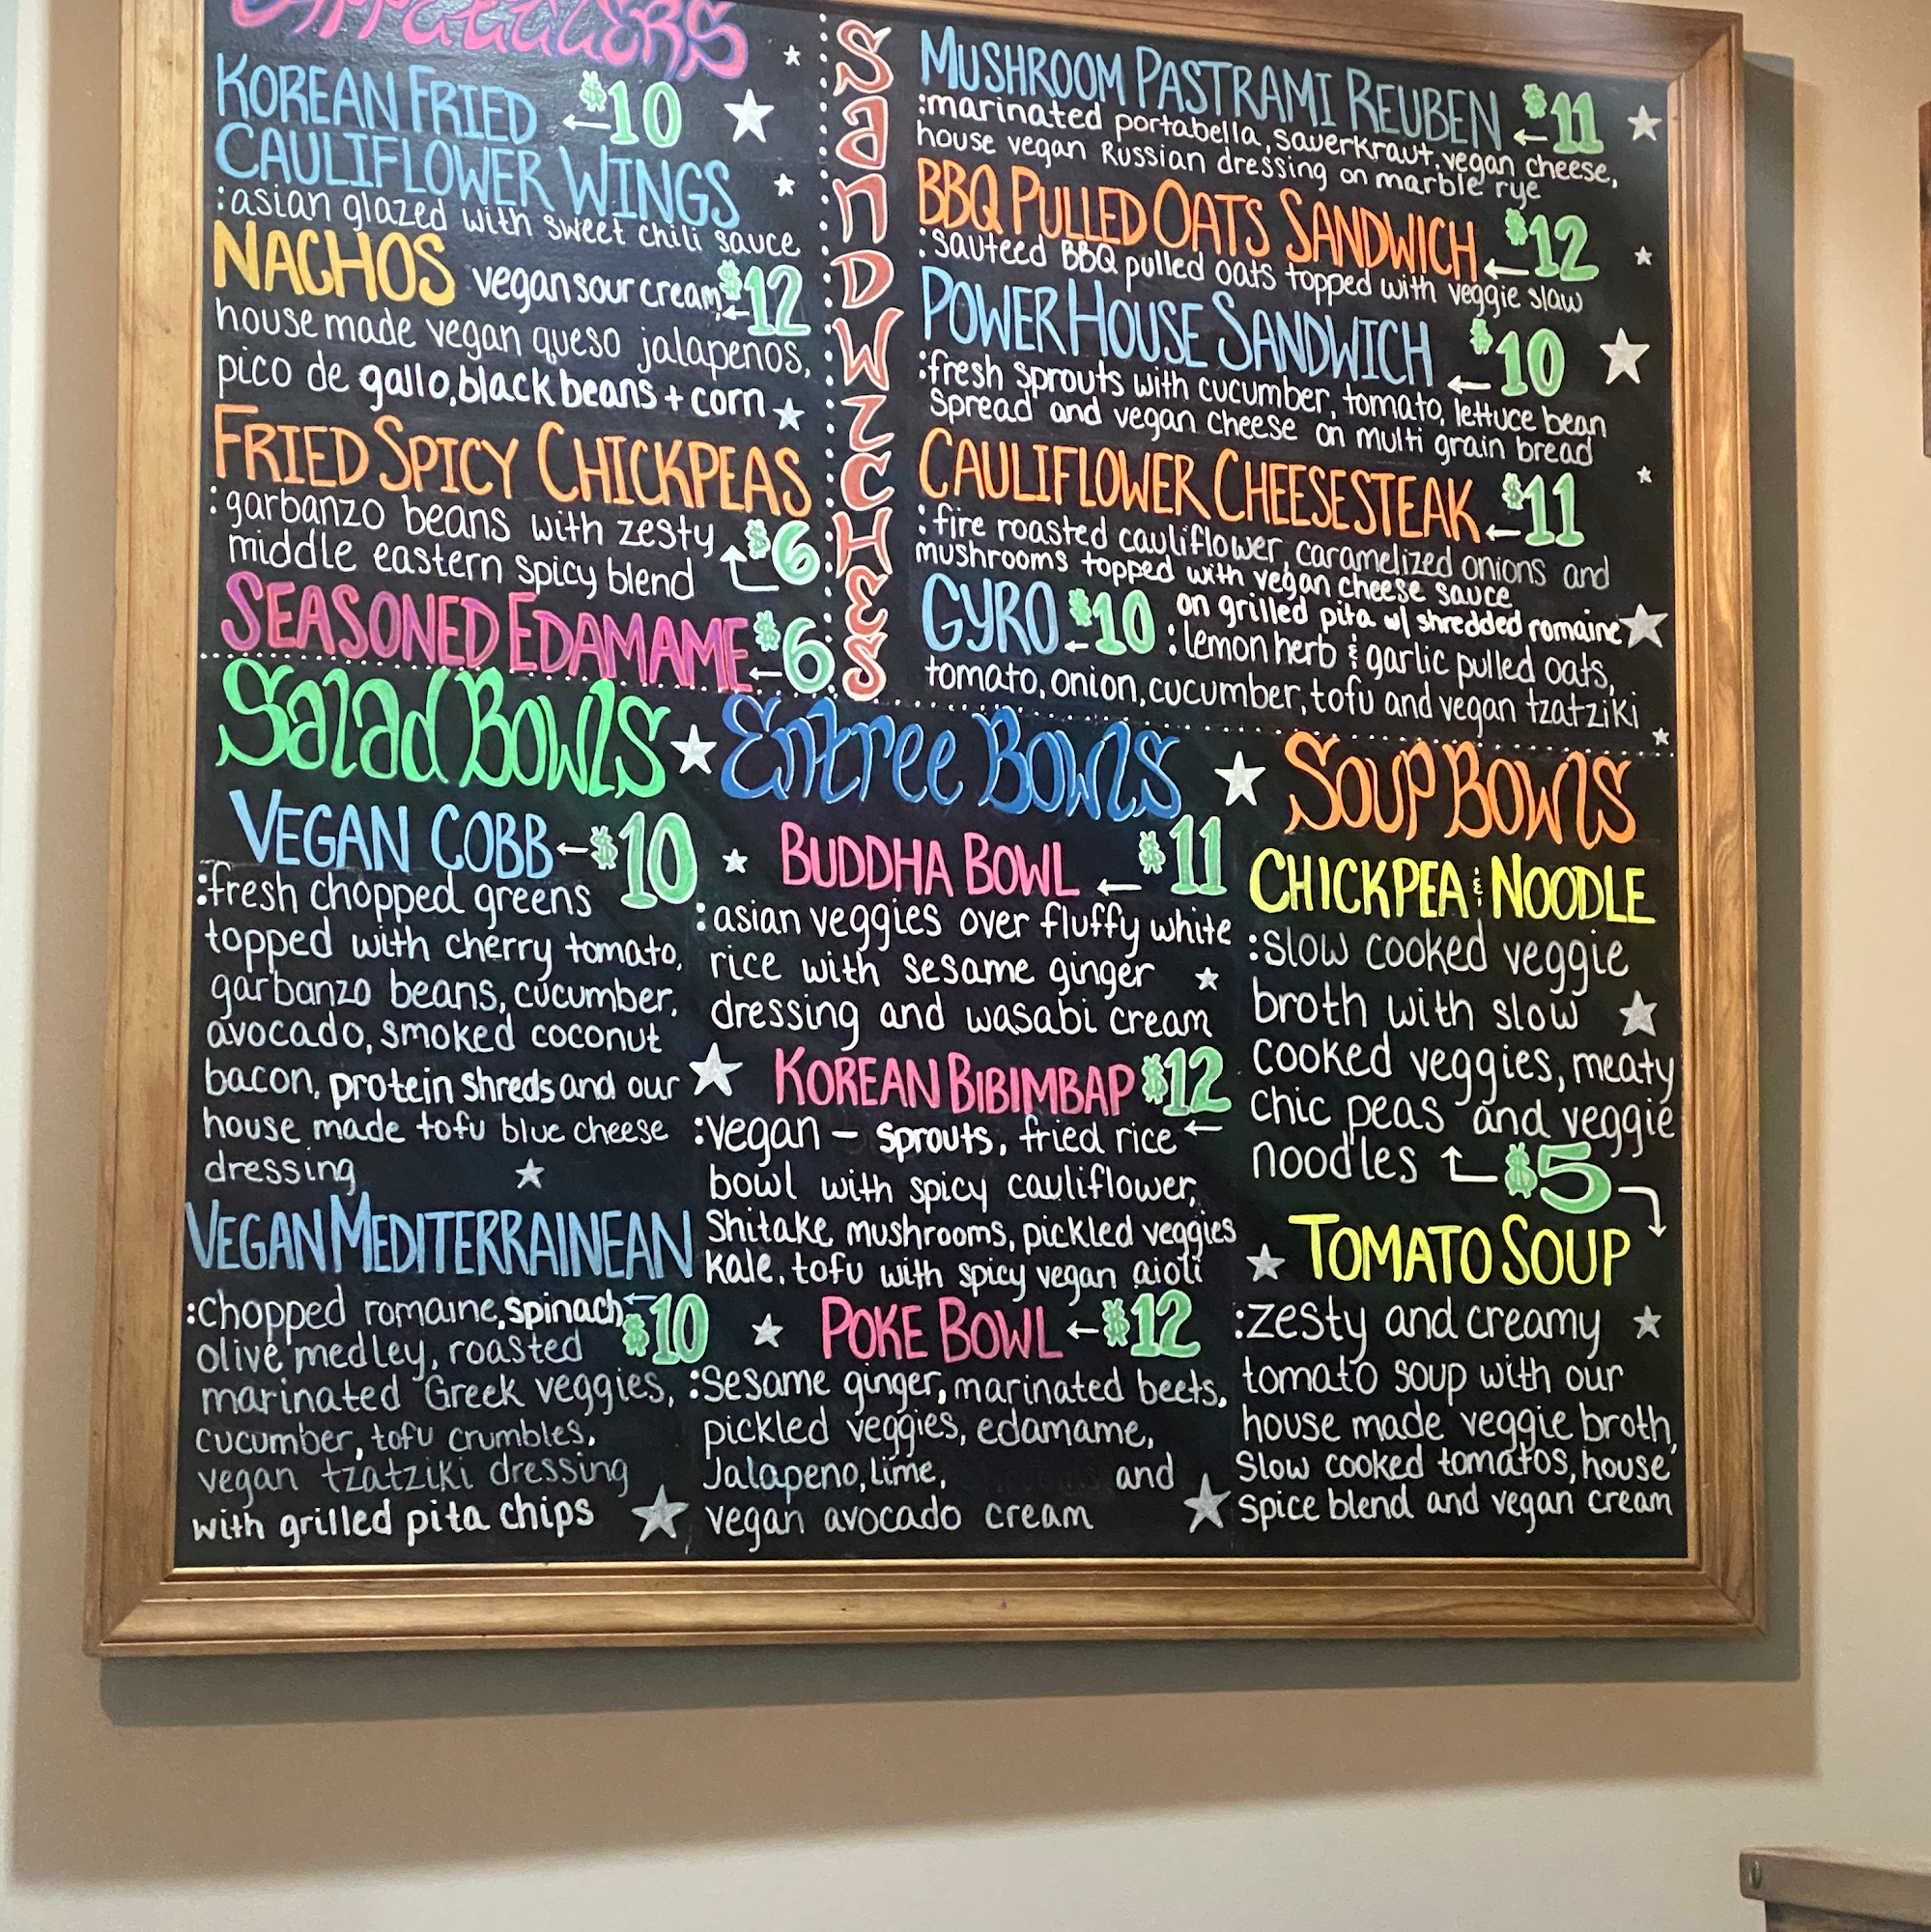 APPETIZERS
KOREAN FRIED ←$10
CAULIFLOWER WINGS
:asian glazed with sweet chili sauce
NACHOS vegan sour cream, ←$12
house made vegan queso jalapenos,
pico de gallo, black beans + corn
FRIED SPICY CHICKPEAS
:garbanzo beans with zesty
middle eastern spicy blend $6
SEASONED EDAMAME ←$6
SANDWICHES
MUSHROOM PASTRAMI REUBEN ←$11
:marinated portabella, sauerkraut, vegan cheese,
house vegan Russian dressing on marble rye
BBQ PULLED OATS SANDWICH ←$12
:sauteed BBQ pulled oats topped with veggie slaw
POWER HOUSE SANDWICH ←$10
:fresh sprouts with cucumber, tomato, lettuce bean
spread and vegan cheese on multi grain bread
CAULIFLOWER CHEESESTEAK ←$11
:fire roasted cauliflower, caramelized onions and
mushrooms topped with vegan cheese sauce
GYRO ←$10 on grilled pita w/ shredded romaine
:lemon herb & garlic pulled oats,
tomato, onion, cucumber, tofu and vegan tzatziki
Salad Bowls
VEGAN COBB ←$10
:fresh chopped greens
topped with cherry tomato,
garbanzo beans, cucumber,
avocado, smoked coconut
bacon, protein shreds and our
house made tofu blue cheese
dressing
VEGAN MEDITERRAINEAN
:chopped romaine, spinach ←$10
olive medley, roasted
marinated Greek veggies,
cucumber, tofu crumbles,
vegan tzatziki dressing
with grilled pita chips
Entree Bowls
BUDDHA BOWL ←$11
:asian veggies over fluffy white
rice with sesame ginger
dressing and wasabi cream
KOREAN BIBIMBAP $12
:vegan - sprouts, fried rice ←
bowl with spicy cauliflower,
Shitake mushrooms, pickled veggies
kale, tofu with spicy vegan aioli
POKE BOWL ←$12
:Sesame ginger, marinated beets,
pickled veggies, edamame,
Jalapeno, lime, and
vegan avocado cream
SOUP BOWLS
CHICKPEA & NOODLE
:slow cooked veggie
broth with slow
cooked veggies, meaty
chic peas and veggie
noodles $5
TOMATO SOUP
:zesty and creamy
tomato soup with our
house made veggie broth,
Slow cooked tomatos, house
spice blend and vegan cream